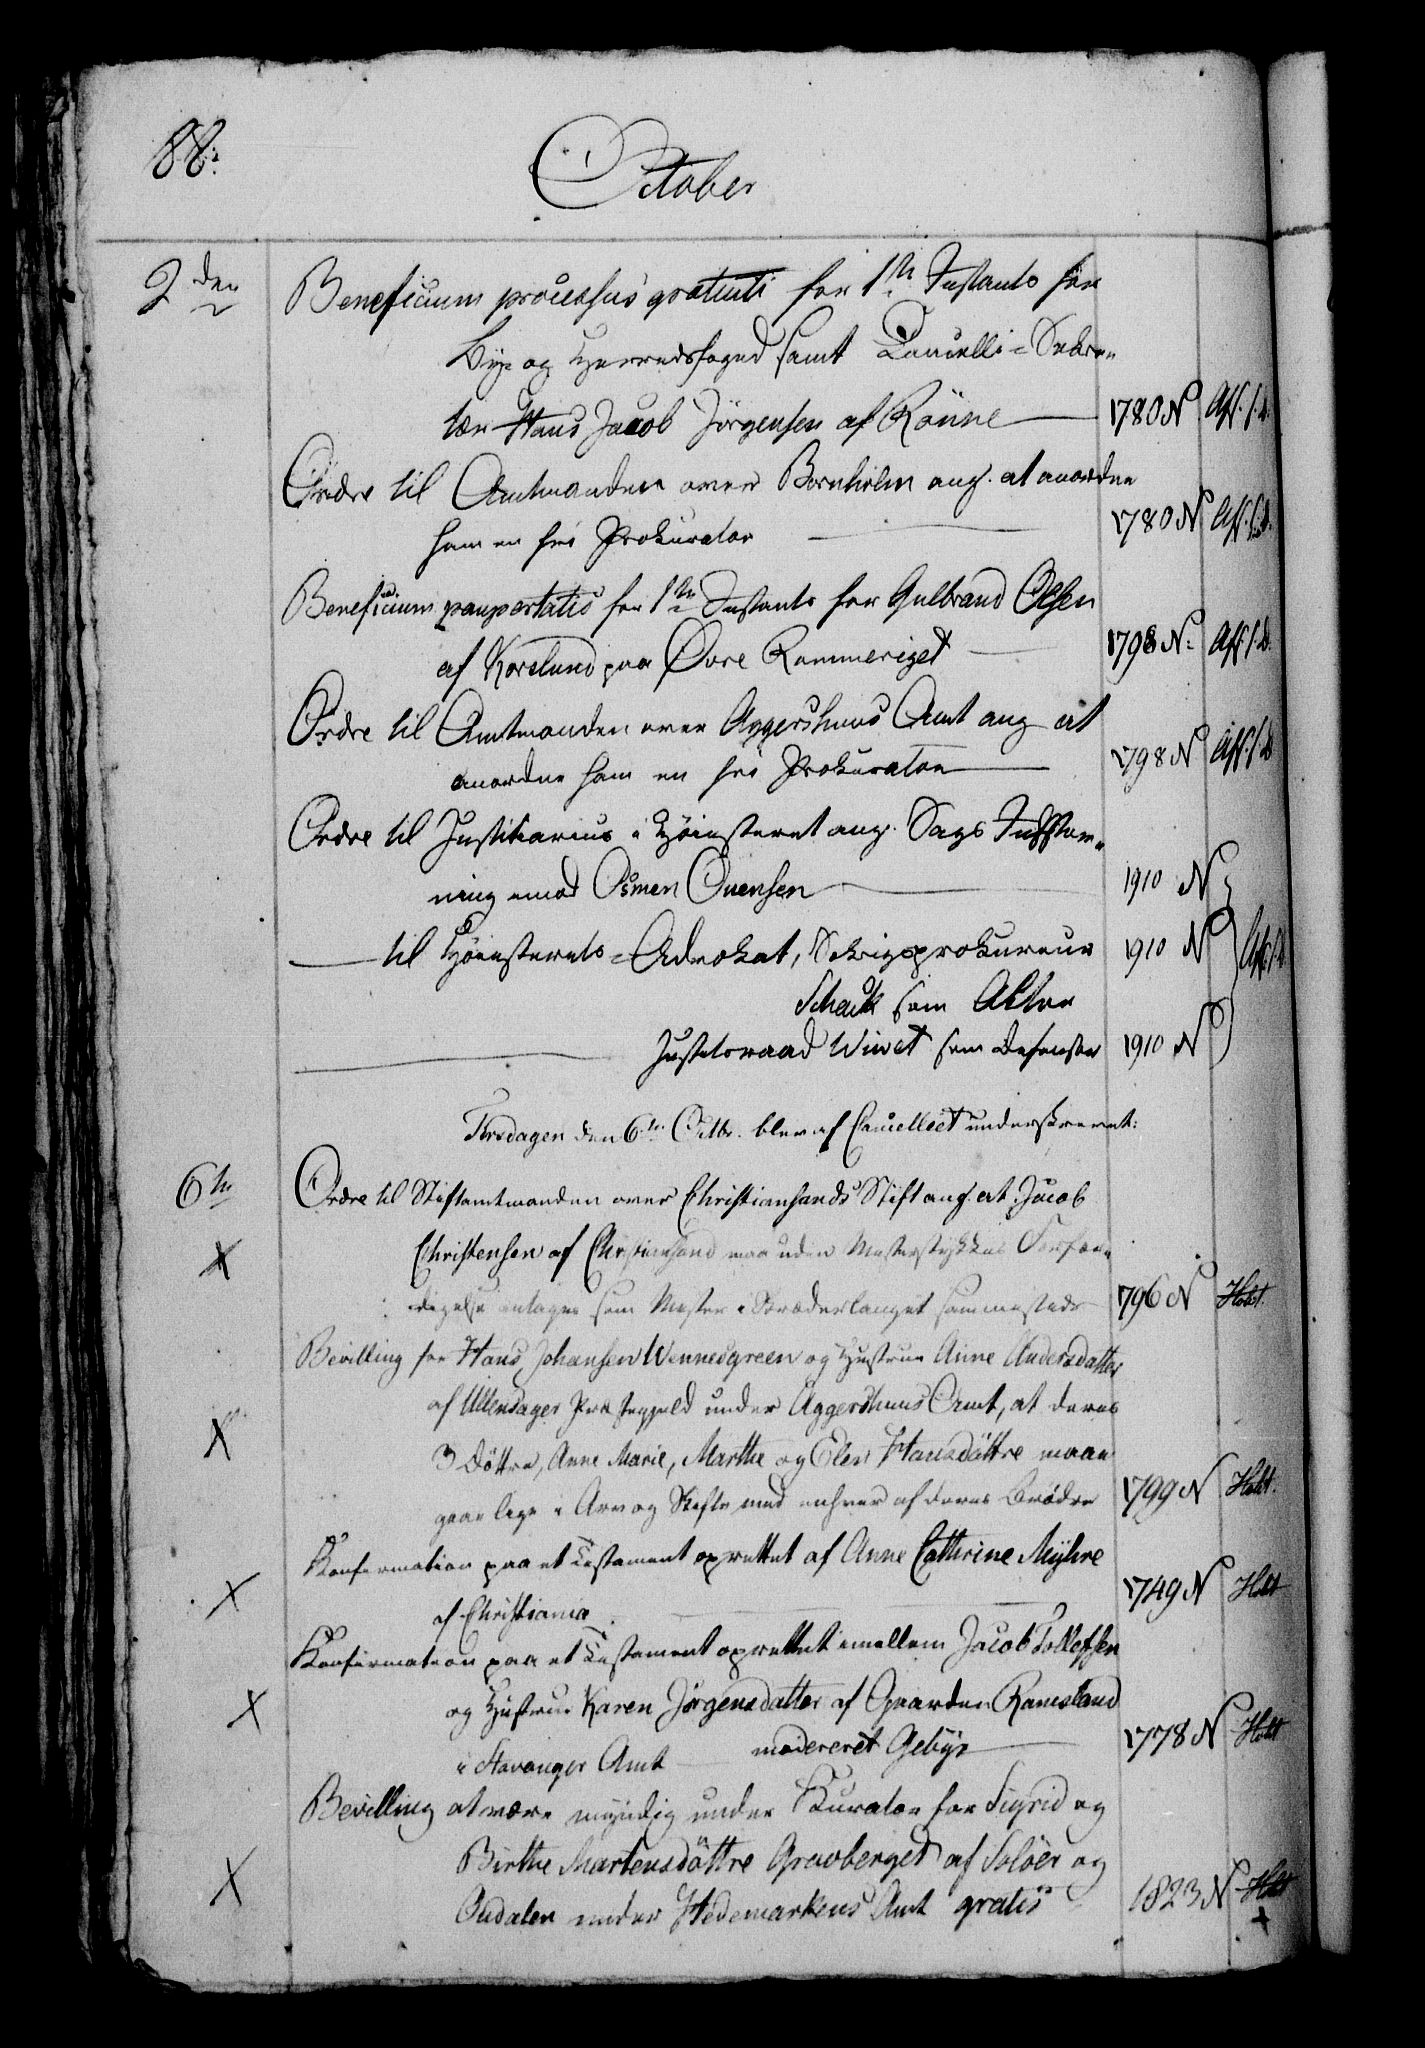 88.
October
2den Beneficium processus gratuiti for 1ste Instants for
By- og Herredsfoged samt Cancelli-Sekre-
tær Hans Jacob Jörgensen af Rönne 1780 N Aff. f. D.
Ordre til Amtmanden over Bornholm ang. at anordne
ham en fri Prokurator 1780 N Aff. f. D.
Beneficium paupertatis for 1ste Instants for Gulbrand Olsen
af Korslund paa Øvre Rommeriget 1798 N. Aff. f. D.
Ordre til Amtmanden over Aggershuus Amt ang at
anordne ham en fri Prokurator 1798 N Aff. f. D
Ordre til Justitiarius i Høiesteret ang. Sags Indstæv-
ning imod Osmen Evensen 1910 N
til Høiesterets-Advokat, Krigsprokureur 1910 N Aff. f. D.
Schack som Aktor
Justitsraad Wivet som Defensor 1910 N
Tirsdagen den 6te Octbr. blev af Cancelliet underskrevet:
6te Ordre til Stiftamtmanden over Christiansands Stift ang. at Jacob
Christensen af Christiansand maa uden Mesterstykkes Forfær-
digelse antages som Mester i Skræderlauget sammesteds 796 N Holst.
Bevilling for Hans Johansen Wennesgreen og Hustrue Anne Andersdatter
af Ullensager Præstegjeld under Aggershuus Amt, at deres
3 Döttre, Anne Marie, Marthe og Elen Hansdöttre maae
gaae lige i Arv og Skifte med enhver af deres Brödre 1799 N Holst.
Konfirmation paa et Testament oprettet af Anne Cathrine Myhre
af Christiania 1749 N Holst
Konfirmation paa et Testament oprettet imellem Jacob Tollefsen
og Hustrue Karen Jörgensdatter af Gaarden Ramsland
i Stavanger Amt modereret Gebyr 1778 N Holst
Bevilling at være myndig under Kurator for Sigrid og
Birthe Martensdöttre Gravberget af Solöer og
Oudalen under Hedemarkens Amt gratis 1823 N Holst